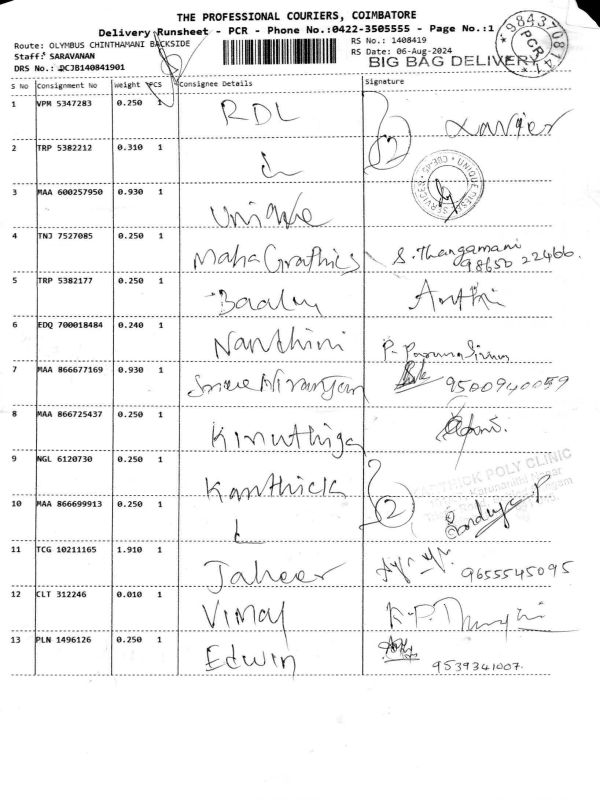 THE PROFESSIONAL COURIERS, COIMBATORE
Delivery Runsheet - PCR - Phone No.:0422-3505555 - Page No.:1
Route: OLYMBUS CHINTHAMANI BACKSIDE
RS No.: 1408419
Staff: SARAVANAN
RS Date: 06-Aug-2024
DRS No.: DCJB140841901
BIG BAG DELIVERY
PCR
S No Consignment No Weight PCS Consignee Details Signature
1 VPM 5347283 0.250 1 RDL Xavier
2 TRP 5382212 0.310 1 2
3 MAA 600257950 0.930 1 Unique
4 TNJ 7527085 0.250 1 Maha Grathics S. Thangamani
98650 22466.
5 TRP 5382177 0.250 1
6 EDQ 700018484 0.240 1 Nanthini
7 MAA 866677169 0.930 1 9500940059
8 MAA 866725437 0.250 1 Kinuthiga
9 NGL 6120730 0.250 1 Kanthick
POLY CLINIC
10 MAA 866699913 0.250 1 2
11 TCG 10211165 1.910 1 Jaheer 9655545095
12 CLT 312246 0.010 1 Vimal
13 PLN 1496126 0.250 1 Edwin 9539341007.